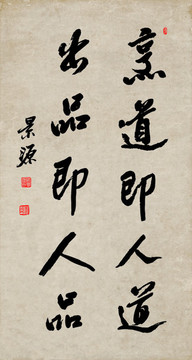 烹道即人道
出品即人品
景源